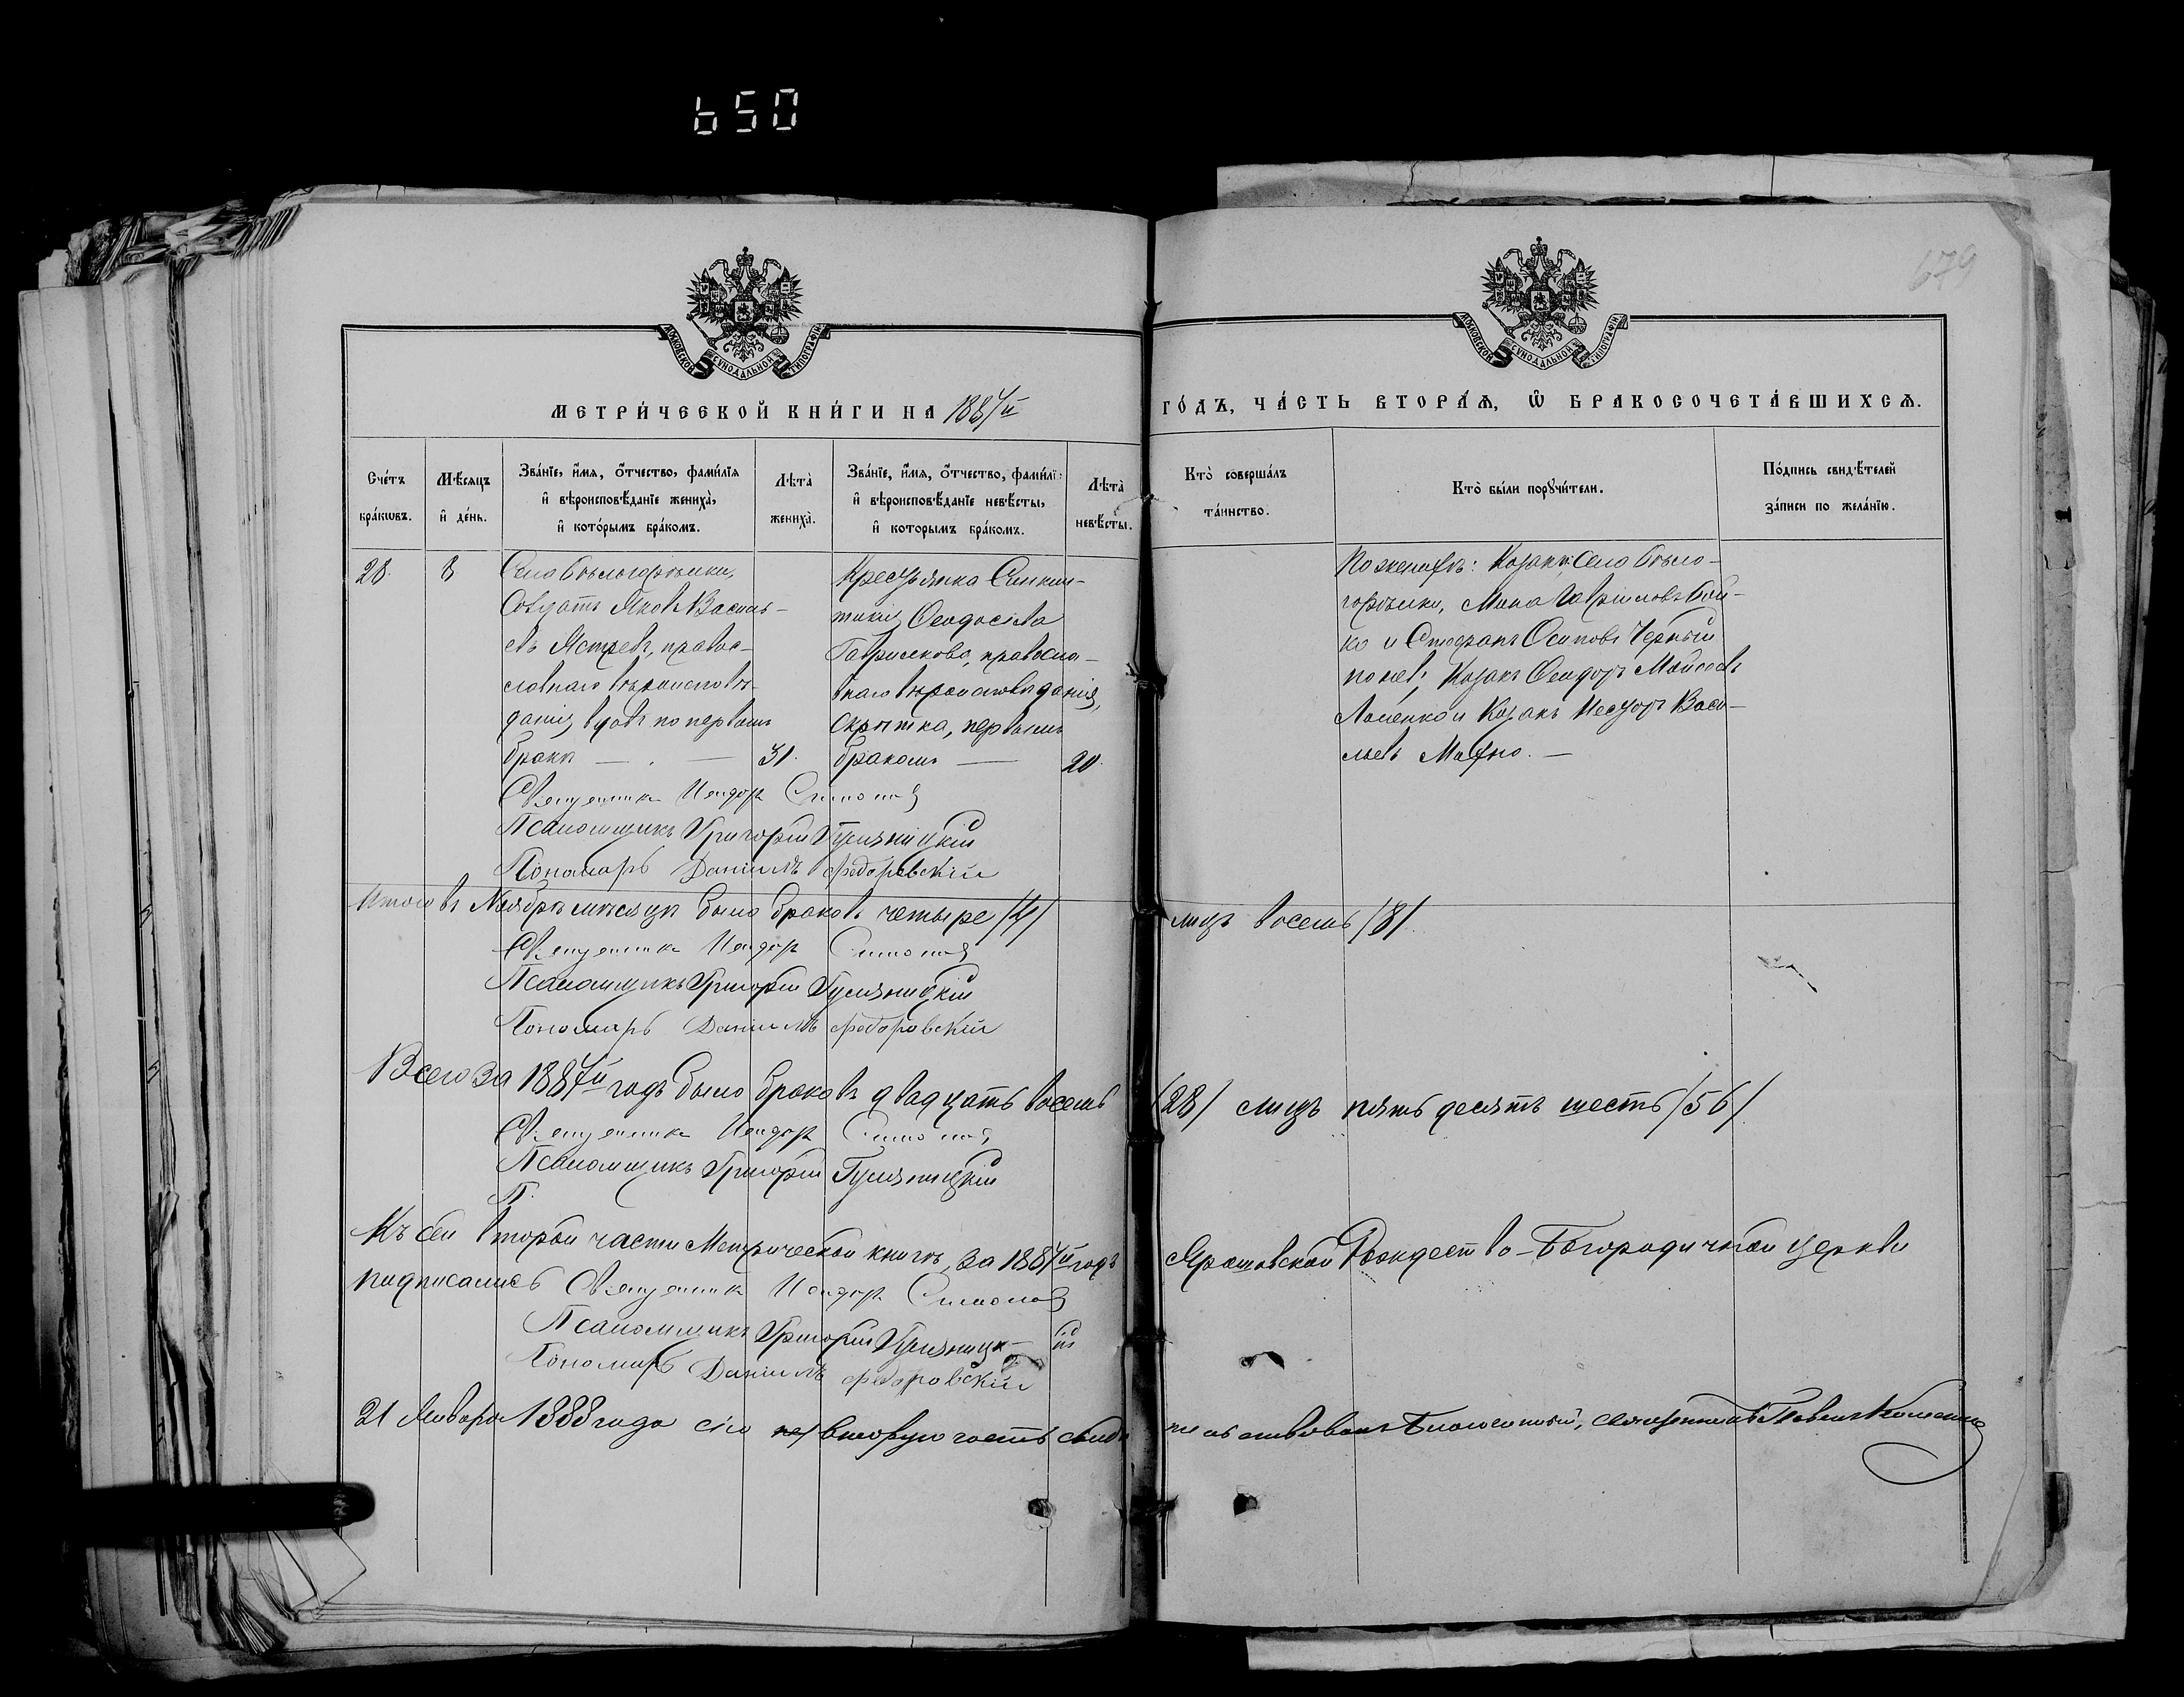 650
679
МОСКОВСКОЙ СУНОДАЛЬНОЙ ТИПОГРАФІИ
МОСКОВСКОЙ СУНОДАЛЬНОЙ ТИПОГРАФІИ
МЕТРИ́ЧЕСКОЙ КНИ́ГИ НА 1887й
ГО́ДЪ, ЧА́СТЬ ВТОРА́Ѧ, Ѽ БРАКОСОЧЕТА́ВШИХСѦ.
Сче́тъ бра́кѡвъ.
Мѣ́сяцъ и҆ де́нь.
Зва́нїе, и҆́мя, ѻ҆́тчество, фами́лїя
и҆ вѣроисповѣ́данїе жениха̀,
и҆ кото́рымъ бра́комъ.
Лѣта̀ жениха̀.
Зва́нїе, и҆́мя, ѻ҆́тчество, фами́лї
и҆ вѣроисповѣ́данїе невѣ́сты,
и҆ которымъ бра́комъ.
Лѣта̀ невѣ́сты.
Кто̀ соверша́лъ та́инство.
Кто̀ бы́ли порꙋчи́тели.
По́дпись свидѣ́телей за́писи по жела́нїю.
28.
8
Села Бѣлогорѣлки,
Солдатъ Яковъ Василь-
евъ Ястребъ, правос-
славнаго вѣроисповѣ-
данія, вдовъ по первомъ
бракѣ — . — 31.
Крестьянка
Ѳеодосіева
Гаврилкова, правосла-
внаго вѣроисповѣданія,
первымъ
бракомъ — 20.
По женихѣ: Козаки Села Бѣло-
горѣлки, Мина Гавріиловъ Бой-
ко и Стефанъ Осиповъ Черный
по нев; Козакъ Ѳеодоръ Моисеевъ
и Козакъ Несторъ Васи-
льевъ Махно. —
Священникъ Исидоръ
Псаломщикъ Григорій Гуляницкій
Пономарь Даніилъ Федоровскій
Итого въ Ноябрѣ мѣсяцѣ было браковъ четыре /4/
лицъ восемь /8/
Священникъ Исидоръ
Псаломщикъ Григорій Гуляницкій
Пономарь Даніилъ Федоровскій
Всего за 1887й годъ было браковъ двадцать восемь
/28/ лицъ пятьдесятъ шесть /56/
Священникъ Исидоръ
Псаломщикъ Григорій Гуляницкій
П.
Къ сей второй части Метрической книгѣ, за 1887й годъ
Ярошовской Рождество-Богородичной церкви
подписались Священникъ Исидоръ
Псаломщикъ Григорій Гуляницкій
Пономарь Даніилъ Федоровскій
21 Января 1888 года сію вторую часть свидѣ
тельствовалъ Благочинный, священникъ Павелъ